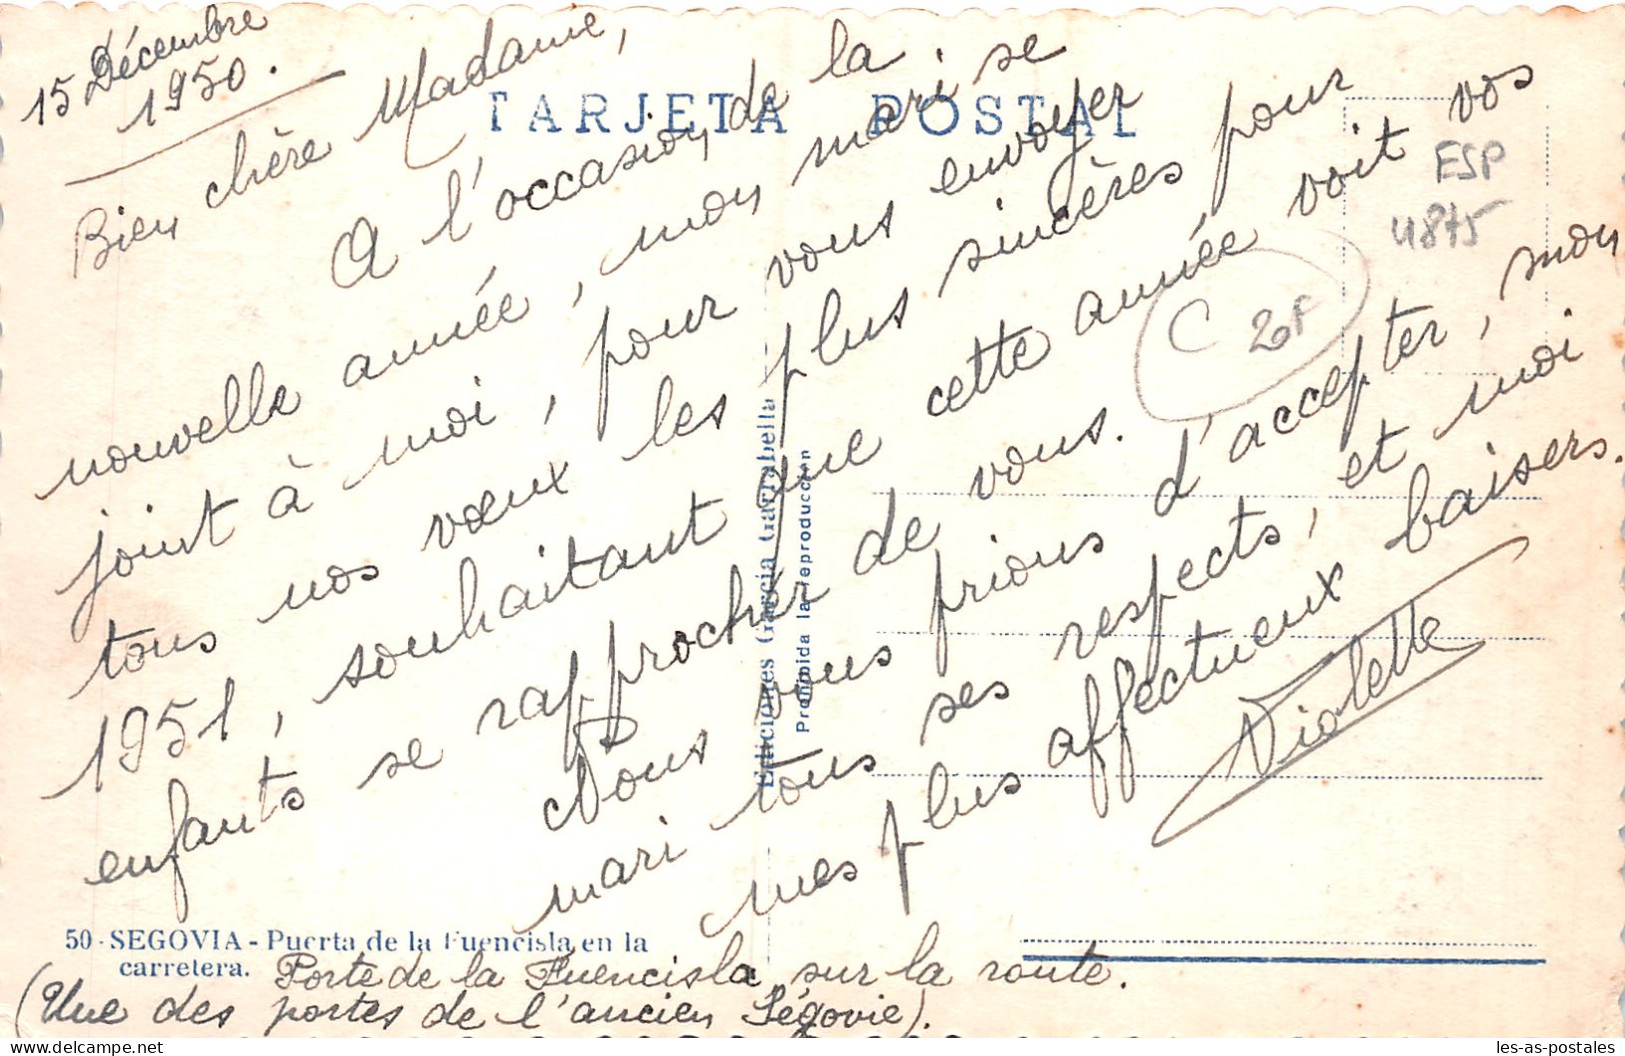 15 Décembre
1950.
Bien chère Madame,
TARJETA POSTAL
A l'occasion de la
nouvelle année, mon mari se
joint à moi, pour vous envoyer
tous nos vœux les plus sincères pour
1951, souhaitant que cette année voit vos
enfants se rapprocher de vous.
Nous vous prions d'accepter, mon
mari tous ses respects, et moi
mes plus affectueux baisers.
Violette
ESP
4875
C 20F
Ediciones García Garrabella
Prohibida la reproducción
50 - SEGOVIA - Puerta de la Fuencisla en la
carretera.
Porte de la Fuencisla, sur la route.
(Une des portes de l'ancien Ségovie).
les-as-postales.com
les-as-postales